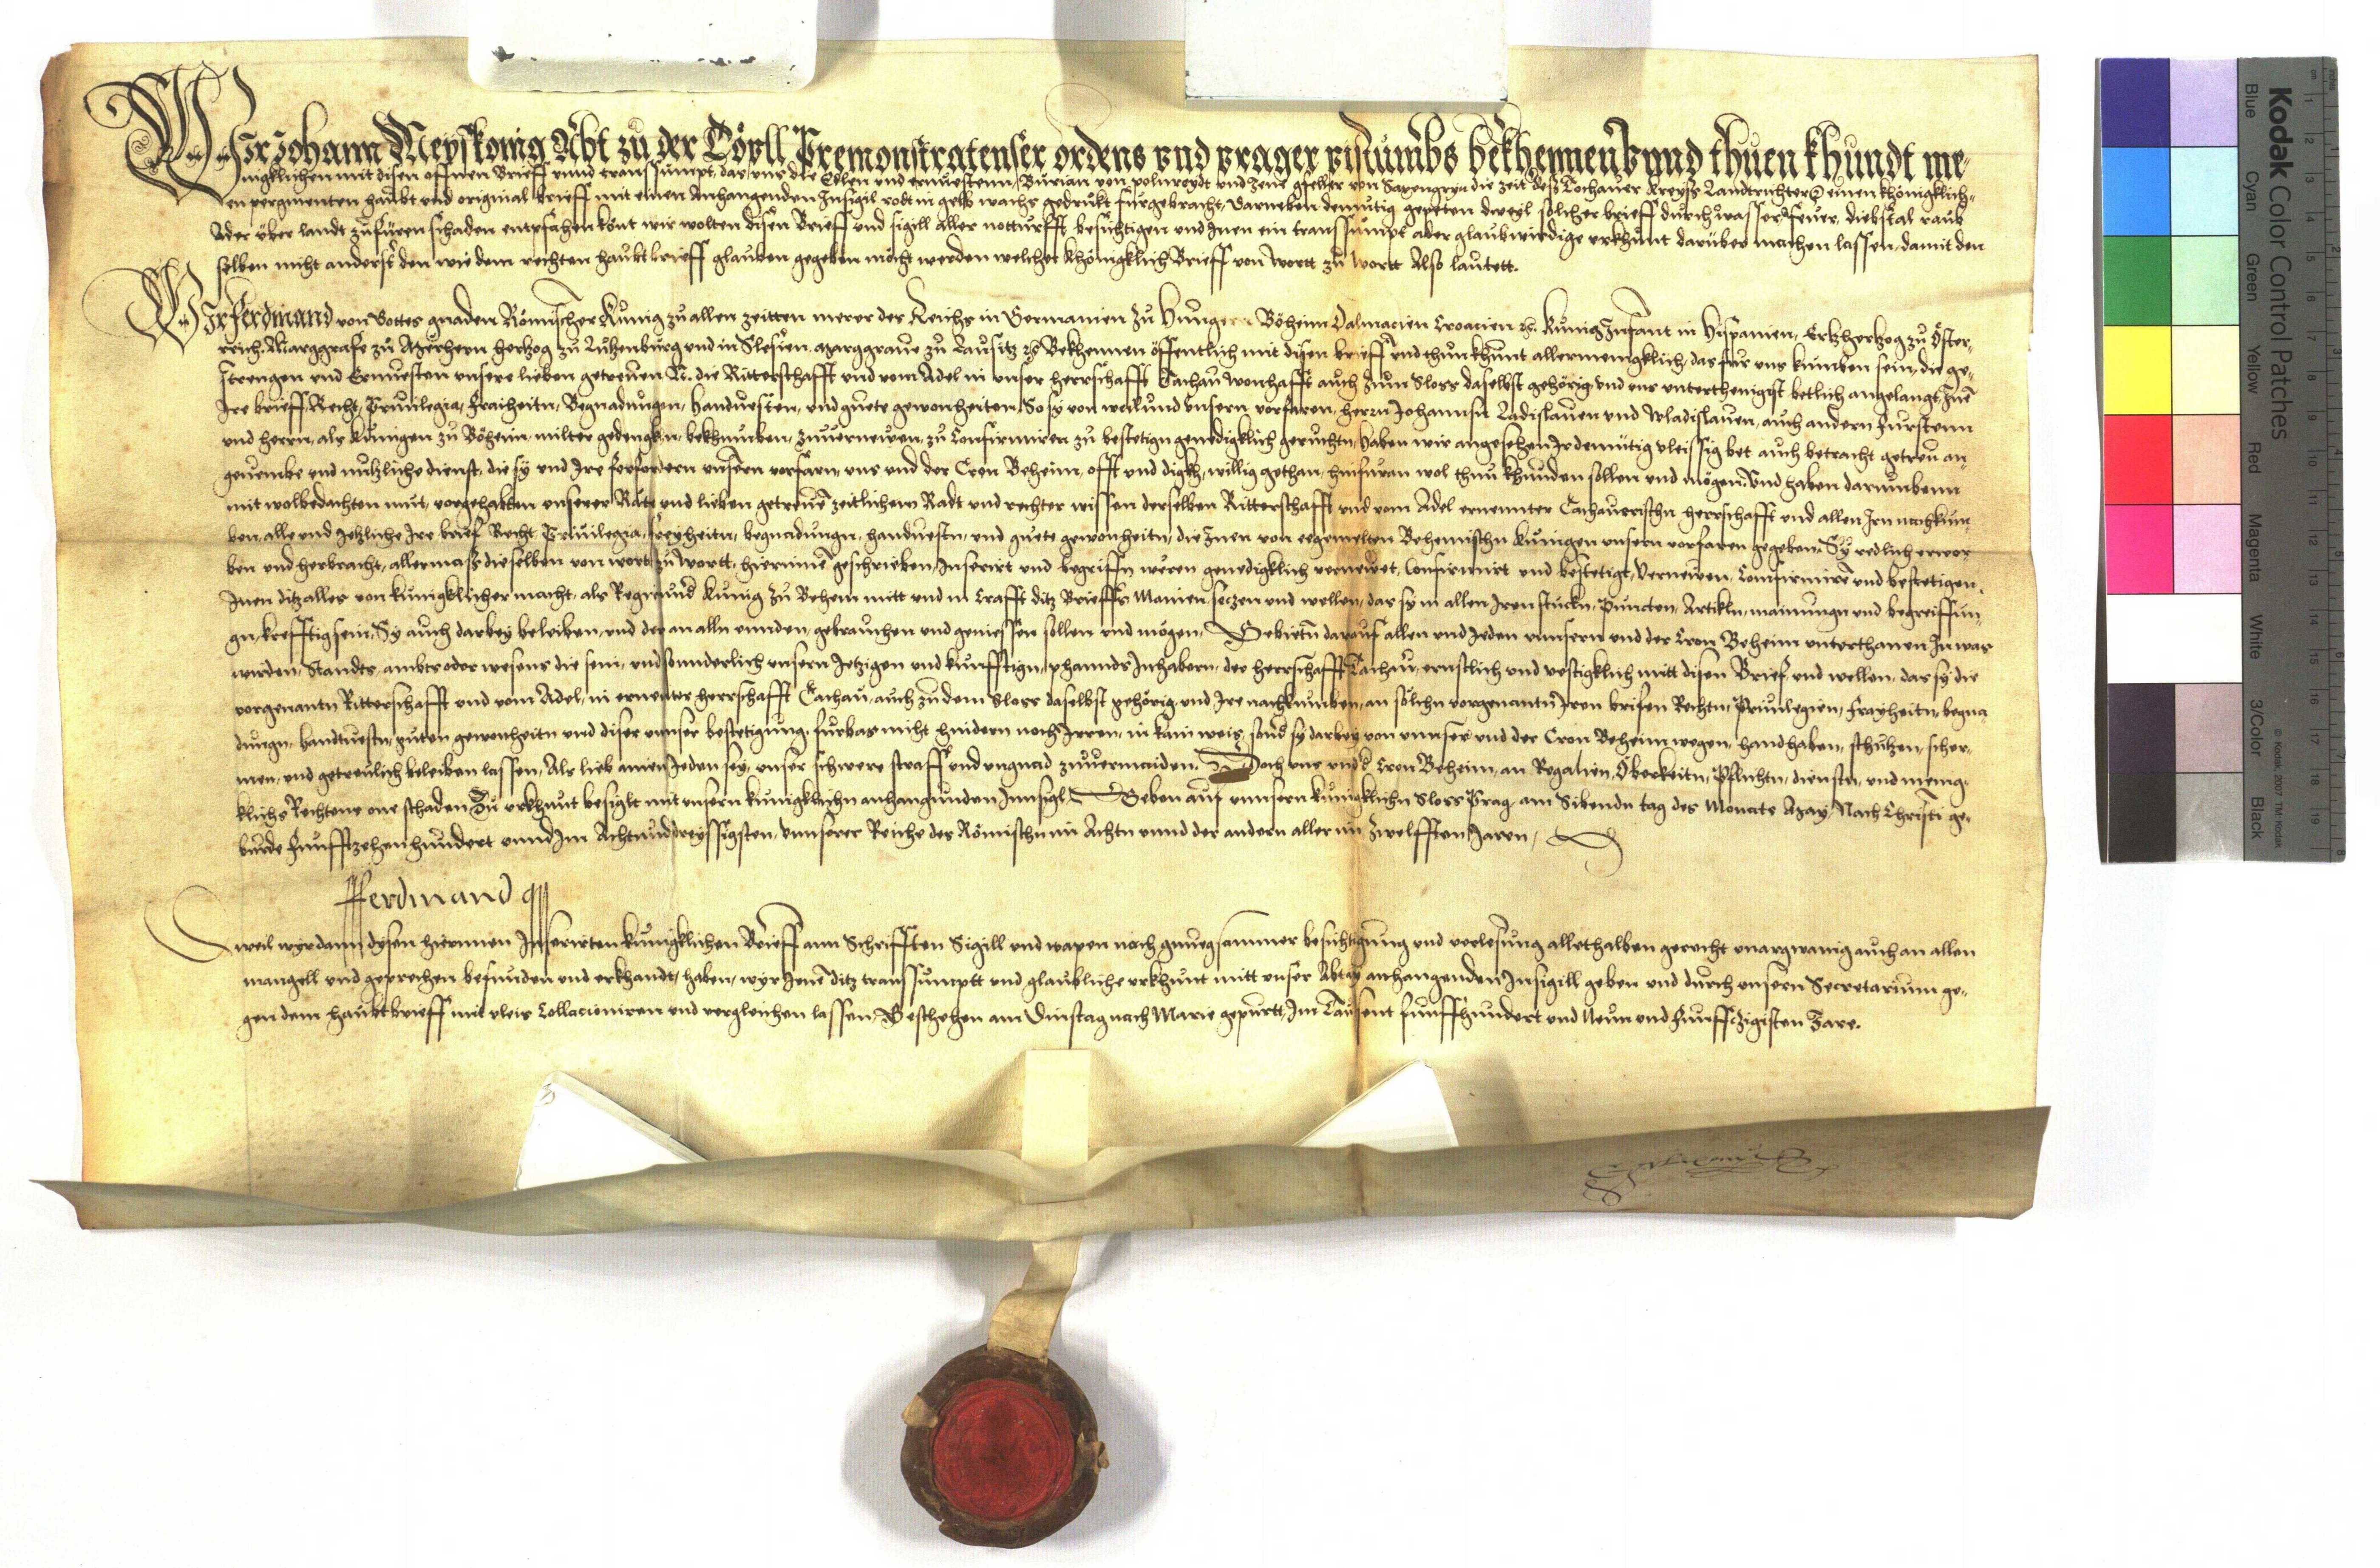 Wir Johann Meyskonig Abt zu der Töpll Premonstratenser ordens vnd prager pistumbs bekhennen vnnd thuen khundt me-
nigklichen mit disen offnen Brieff vnnd transsumpt, das vns die Edlen vnd ernuesten, Burian von vnd Jene gfeller von die zeit des Tachauer kreyss Landtrichter einen khönigklich-
en pergmenten haubt vnd original brieff mit einen Anhangenden Insigil rodt in gelb wachs gedrukt furgebracht, darneben demutig gepeten dweyl solcher brieff durch wasser feuer, diebstal raub
Ader über landt zufüren schaden entpfahen könt wir wolten disen Brieff vnd sigill aller notturfft besichtigen vnd Inen ein transsumpt ader glaubwirdige vrkhunt darüber machen lassen, damit den
selben nicht anderst den wie dem rechten haubt brieff glauben gegeben möcht werden welcher khönigklich Brieff von wortt zu wortt Also lautett.
Wir Ferdinand von Gottes gnaden Römischer Kunig zu allen zeitten merer des Reichs in Germanien zu Hungern Böheim Dalmacien Croacien ꝛc. Kunig Infant in Hispanien, Ertzhertzog zu Öster-
reich, Marggrafe zu Merhern hertzog zu Lutzenburg vnd in Slesien, marggraue zu Lausitz ꝛc Bekhennen öffentlich mit disen brieff vnd thun khunt allermenigklich, das fur vns kumben sein, die ge-
strengen vnd Ernuesten vnsere lieben getreuen N. die Ritterschafft vnd vom Adel in vnser herrschafft Tachau wonhafft auch zum Sloss daselbst gehörig, vnd vns vnterthenigist betlich angelangt, Inen
Ire brieff, Recht, Priuilegia, Fraiheitn, Begnadungen, Handuesten, vnd guete gewonheiten, So sy von weilund vnsern vorfaren, herrn Johannsn Ladislauen vnd Wladislauen, auch andern Fursten
vnd herrn, als Kunigen zu Böheim, milter gedencken, bekhumben, zuuerneuen, zu Confirmiren zu bestetign genedigklich geruchtn, Haben wir angesehen Ir demütig vleissig bet auch betracht getreu an-
geuembe vnd nutzliche dienst, die sy vnd Ire forfordern vnsern vorfarn, vns vnd der Cron Beheim, offt vnd digkh, willig gethan, hinfuran wol thun khunden sollen vnd mögen, Vnd haben darumbenn
mit wolbedachten mut, vorgehabten vnserer Räte vnd lieben getreuen zeitlichem Radt vnd rechter wissen derselben Ritterschafft vnd vom Adel ernennter Tachauerischn herrschafft vnd allen Irn nachkum-
ben, alle vnd yetzliche Ire brief Recht, Priuilegia, freyheitn, begnadungn, handuestn, vnd guete gewonheitn, die Inen von eegemelten Behemischn Kunigen vnsern vorfaren gegeben, Sy redlich erwor-
ben vnd herbracht, allermass dieselben von wort zu wortt, hierinnen geschrieben, Inserirt vnd begriffn weren genedigklich verneuet, Confirmirt vnd bestetigt, Verneuen, Confirmiren vnd bestetigen,
Inen ditz alles von kunigklicher macht, als Regirund Kunig zu Behem mitt vnd in Crafft ditz Brieffs Mainen setzen vnd wellen, das sy in allen Iren stuckn, Puncten, Artikln, mainungn vnd begreiffun-
gn, krefftig sein, Sy auch darbey beleiben, vnd der an alln ennden, gebrauchen vnd geniessen sollen vnd mögen, Gebietn darauf allen vnd Jeden vnnsern vnd der Cron Beheim vnterthanen In was
wirden, Standts, ambts oder wesens die sein, vnd sonnderlich vnsern Jetzigen vnd kunfftign, phannds Inhabern, der herrschafft Tachau, ernstlich vnd vestigklich mitt disen Brief, vnd wellen, das sy die
vorgenantn Ritterschafft vnd vom Adel, in ernenter herrschafft Tachau, auch zu dem Sloss daselbst gehörig, vnd Ire nachkumben, an sölichn vorgenantn Iren brifen Rechtn, Priuilegien, Frayheitn, begna-
dungn, handtuestn, guten gewonheitn vnd diser vnnser bestetigung, furbas nicht hindern noch Irren, in kain weis, sond sy darbey von vnnser vnd der Cron Beheim wegen, handhaben, schutzen, scher-
men, vnd getreulich beleiben lassen, Als lieb ainen Jeden sey, vnser schwere straff vnd vngnad zuuermeiden. Doch vns vnd d Cron Beheim, an Regalien, Oberkeitn, Pflichtn, dienstn, vnd menig-
klichs Rechtens one schaden Zu vrkhunt besiglt mit vnsern kunigklichn anhangunden Innsigl. Geben auf vnnsern kunigklichn Sloss Prag am Sibendn tag des Monats May, Nach Christi ge-
burde Funffzehenhundert vnnd Im Achtunddreyssigsten, Vnnserer Reiche des Römischn im Achtn vnnd der andern aller im zwelfften Jaren,
Ferdinand
weil wyr dann dysen hierinnen Inserirten kunigklichen Brieff ann Schrifften Sigill vnd wapen nach gnuegsammer besichtigung vnd verlesung allethalben gerecht vnargwanig auch an allen
mangell vnd geprechen befunden vnd erkhandt, haben, wyr Inen ditz transsumptt vnd glaubliche vrkhunt mitt vnser Abtay anhangenden Insigill geben vnd durch vnsern Secretarium ge-
gen dem haubtbrieff mit vleis Collacioniren vnd vergleichen lassen, Geschehen am Dinstag nach Marie gepurtt, Im Tausent funffhundert vnd Neun vnd Funffczigisten Jare.
Kodak Color Control Patches
Blue Cyan Green Yellow Red Magenta White 3/Color Black
© Kodak, 2007 TM: Kodak